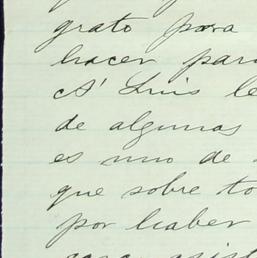 grato para
hacer para
A' Luis le
de algunas
es uno de
que sobre to
por haber